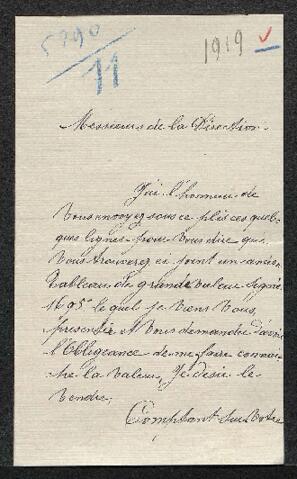 5990
11
1919
Messieurs de la Direction
J'ai l'honneur de
vous envoyez sous ce plis ces quel
ques lignes pour vous dire que
vous trouverez ci joint un ancien
tableau de grande valeur signé
1695 le quel je viens vous
presenter et vous demande d'avoir
l'Obligeance de me faire connai
tre la valeur, Je désire le
vendre,
Comptant sur votre